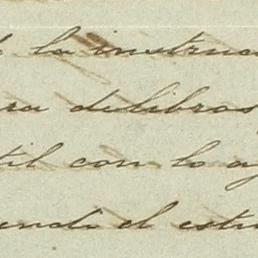 la instruc
ra delibros
til con lo a
endi el estu